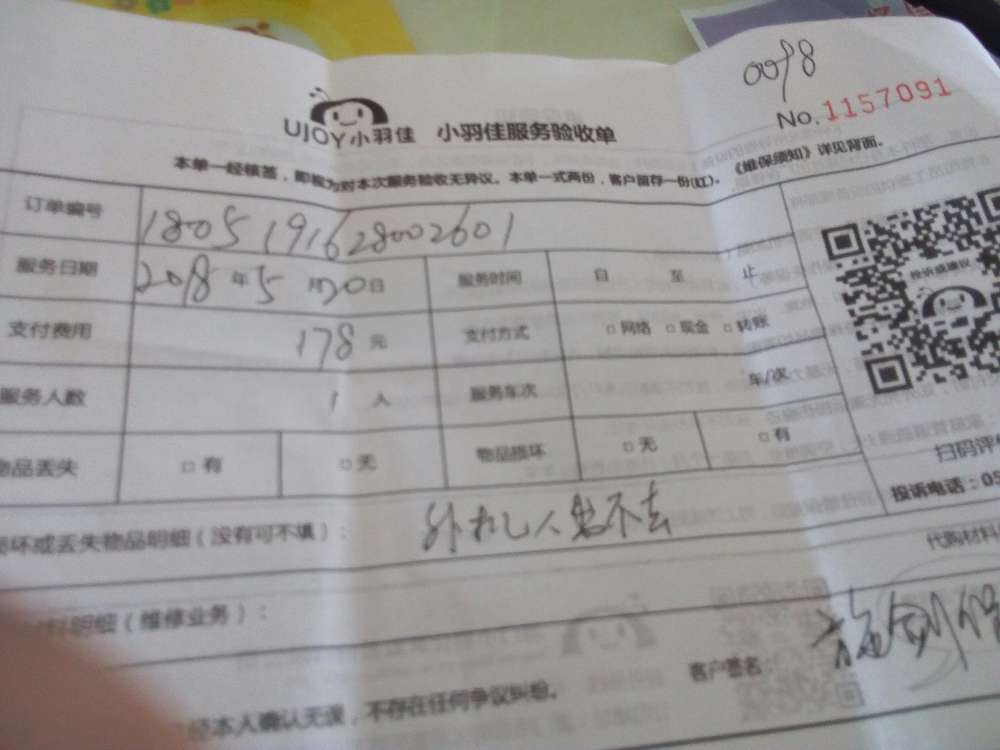 0098
No.1157091
UJOY小羽佳 小羽佳服务验收单
本单一经核签，即视为对本次服务验收无异议。本单一式两份，客户留存一份(红)。《维保须知》详见背面。
订单编号 1805191628002601
服务日期 2018年5月20日 服务时间 自 至 止
投诉或建议
支付费用 178元 支付方式 □网络 □现金 □转账
服务人数 1人 服务车次 车/次
物品丢失 □有 □无 物品损坏 □无 □有
扫码评价
投诉电话：05
损坏或丢失物品明细（没有可不填）： 外机人出不去
代购材料
材料明细（维修业务）：
经本人确认无误，不存在任何争议纠纷。
客户签名：